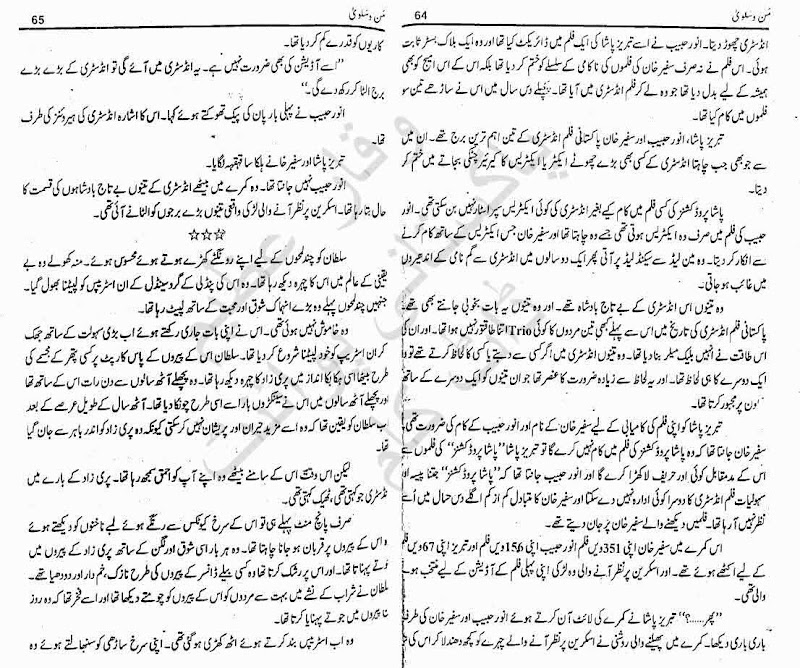 64
من و سلویٰ
انڈسٹری چھوڑ دیتا۔ انور حبیب نے اسے تبریز پاشا کی ایک فلم میں ڈائریکٹ کیا تھا اور وہ ایک بلاک بسٹر ثابت
ہوئی۔ اس فلم نے نہ صرف سفیر خان کی فلموں کی ناکامی کے سلسلے کو ختم کر دیا تھا بلکہ اس کے اس امیج کو بھی
ہمیشہ کے لیے بدل دیا تھا جو وہ لے کر فلم انڈسٹری میں آیا تھا۔ پچھلے دس سال میں اس نے ساڑھے تین سو
فلموں میں کام کیا تھا۔
تبریز پاشا، انور حبیب اور سفیر خان پاکستانی فلم انڈسٹری کے تین اہم ترین برج تھے۔ ان میں
سے جو بھی جب چاہتا انڈسٹری کے کسی بھی بڑے چھوٹے ایکٹر یا ایکٹریس کا کیریئر چٹکی بجاتے میں ختم کر
دیتا۔
پاشا پروڈکشنز کی کسی فلم میں کام کیے بغیر انڈسٹری کی کوئی ایکٹریس سپر اسٹار نہیں بن سکتی تھی۔ انور
حبیب کی فلم میں صرف وہ ایکٹریس ہوتی تھی جسے وہ چاہتا تھا اور سفیر خان جس ایکٹریس کے ساتھ کام کرنے
سے انکار کر دیتا۔ وہ مین لیڈ سے سیکنڈ لیڈ پر آتی پھر ایک دو سالوں میں اسی کم نامی کے اندھیروں
میں غائب ہو جاتی۔
وہ تینوں اس انڈسٹری کے بے تاج بادشاہ تھے۔ اور وہ تینوں یہ بات بخوبی جانتے بھی تھے۔
پاکستانی فلم انڈسٹری کی تاریخ میں اس سے پہلے بھی تین مردوں کا کوئی Trio اتنا طاقتور نہیں ہوا تھا۔ اور ان کی
اس طاقت نے انہیں بلیک میلر بنا دیا تھا۔ وہ تینوں انڈسٹری میں اگر کسی سے دبتے یا کسی کا لحاظ کرتے تھے تو
ایک دوسرے کا ہی لحاظ تھا۔ اور یہ لحاظ سے زیادہ ضرورت کا عنصر تھا جو ان تینوں کو ایک دوسرے کے ساتھ
پر مجبور کرتا تھا۔
تبریز پاشا کو اپنی فلم کی کامیابی کے لیے سفیر خان کے نام اور انور حبیب کے کام کی ضرورت تھی
سفیر خان جانتا تھا کہ وہ پاشا پروڈکشنز کی فلم میں کام نہیں کرے گا تو تبریز پاشا ”پاشا پروڈکشنز“ کی فلموں
اس کے مدمقابل کوئی اور حریف لا کھڑا کرے گا اور انور حبیب جانتا تھا کہ ”پاشا پروڈکشنز“ جتنا پیسہ
سہولیات فلم انڈسٹری کا دوسرا کوئی ادارہ نہیں دے سکتا اور سفیر خان کا متبادل کم از کم اگلے دس سال میں اسے
نظر نہیں آ رہا تھا۔ فلمیں دیکھنے والے سفیر خان پر جان دیتے تھے۔
اس کمرے میں سفیر خان اپنی 351 ویں فلم انور حبیب اپنی 156 ویں فلم اور تبریز اپنی 67 ویں فلم
کے لیے اکٹھے ہوئے تھے۔ اور اسکرین پر نظر آنے والی وہ لڑکی اپنی پہلی فلم کے آڈیشن کے لیے منتخب ہونے
والی تھی۔
”پھر......؟“ تبریز پاشا نے کمرے کی لائٹ آن کرتے ہوئے انور حبیب اور سفیر خان کی طرف
باری باری دیکھا۔ کمرے میں پھیلنے والی روشنی نے اسکرین پر نظر آنے والے چہرے کو کچھ دھندلا کر اس کی
65
من و سلویٰ
کاریوں کو قدرے کم کر دیا تھا۔
”اسے آڈیشن کی بھی ضرورت نہیں ہے۔ یہ انڈسٹری میں آئے گی تو انڈسٹری کے بڑے بڑے
برج الٹا کر رکھ دے گی۔“
انور حبیب نے پہلی بار پان کی پیک تھوکتے ہوئے کہا۔ اس کا اشارہ انڈسٹری کی ہیروئنز کی طرف
تھا۔
تبریز پاشا اور سفیر خان نے ہلکا سا قہقہہ لگایا۔
انور حبیب نہیں جانتا تھا۔ وہ کمرے میں بیٹھے انڈسٹری کے تینوں بے تاج بادشاہوں کی قسمت کا
حال بتا رہا تھا۔ اسکرین پر نظر آنے والی لڑکی واقعی تینوں بڑے برجوں کو الٹانے آئی تھی۔
☆☆☆
سلطان کو چند لمحوں کے لیے اپنے رونگٹے کھڑے ہوتے ہوئے محسوس ہوئے۔ منہ کھولے وہ بے
یقینی کے عالم میں اس کا چہرہ دیکھ رہا تھا۔ وہ اس کی پنڈلی کے گرد سینڈل کے ان اسٹریپس کو لپیٹنا بھول گیا۔
جنہیں چند لمحوں پہلے وہ بڑے انہماک شوق اور محبت کے ساتھ لپیٹ رہا تھا۔
وہ خاموش نہیں ہوئی تھی۔ اس نے اپنی بات جاری رکھتے ہوئے اب بڑی سہولت کے ساتھ جھک
کر ان اسٹریپ کو خود لپیٹنا شروع کر دیا تھا۔ سلطان اس کے پیروں کے پاس کارپٹ پر کسی پتھر کے مجسمے کی
طرح بیٹھا اسی ہکا بکا انداز میں پری زاد کا چہرہ دیکھ رہا تھا۔ وہ پچھلے آٹھ سالوں سے دن رات اس کے ساتھ تھا
اور پچھلے آٹھ سالوں میں اس نے سینکڑوں بار اسے اسی طرح چونکا دیا تھا۔ آٹھ سال کے طویل عرصے کے بعد
اب سلطان کو یقین تھا کہ وہ اسے مزید حیران اور پریشان نہیں کر سکتی کیونکہ وہ پری زاد کو اندر باہر سے جان گیا
تھا۔
لیکن اس وقت اس کے سامنے بیٹھے وہ اپنے آپ کو احمق سمجھ رہا تھا۔ پری زاد کے بارے میں
انڈسٹری جو کہتی تھی، ٹھیک کہتی تھی۔
صرف پانچ منٹ پہلے ہی تو اس کے سرخ کیوٹکس سے رنگے ہوئے لمبے ناخنوں کو دیکھتے ہوئے
وہ اس کے پیروں پر قربان ہو جانا چاہتا تھا۔ وہ ہر بار اسی شوق اور لگن کے ساتھ پری زاد کے پیروں میں
جوتے پہناتا تھا۔ اور اس پر رشک کرتا تھا وہ کسی بیلے ڈانسر کے پیروں کی طرح نازک، خم دار اور دودھیا تھے۔
سلطان نے شراب کے نشے میں بہت سے مردوں کو اس کے پیروں کو چومتے دیکھا تھا اور اسے فخر تھا کہ وہ روز
ان پیروں میں جوتے پہنایا کرتا تھا۔
وہ اب اسٹریپس بند کرتے ہوئے اٹھ کھڑی ہو گئی تھی۔ اپنی سرخ ساڑھی کو سنبھالتے ہوئے وہ